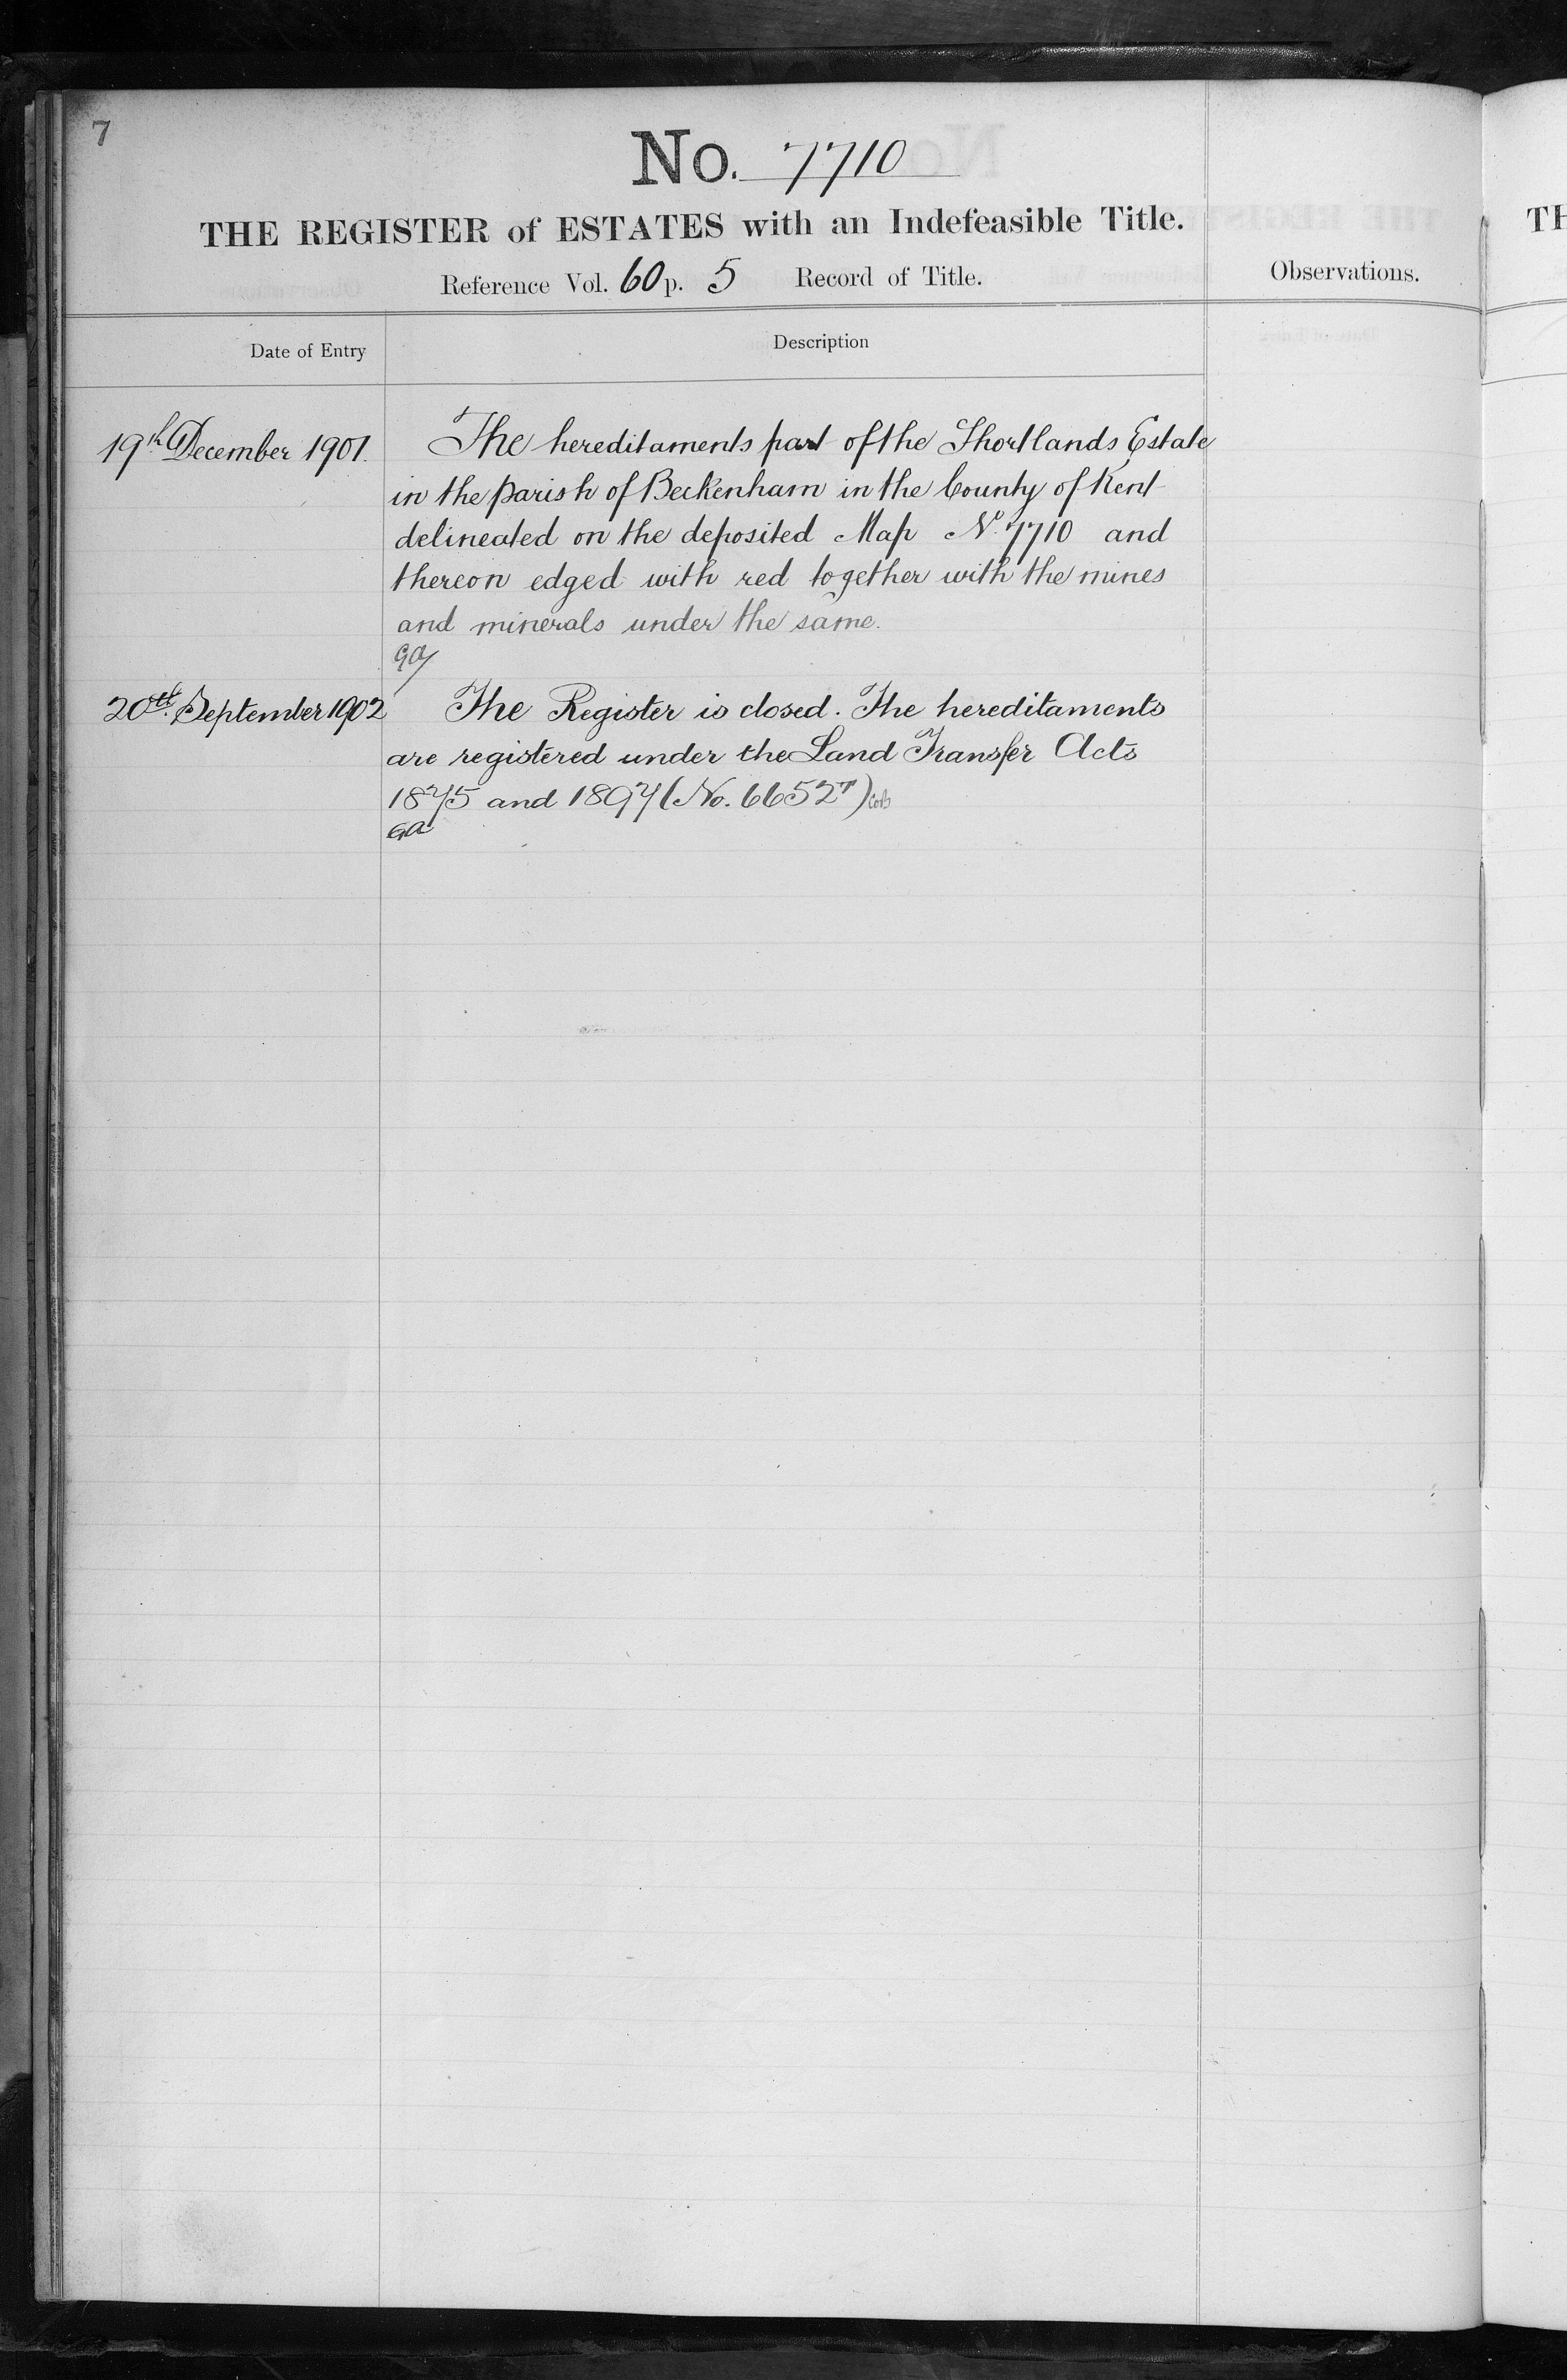 7
No. 7710
THE REGISTER of ESTATES with an Indefeasible Title.
Reference Vol. 60 p. 5 Record of Title.
Observations.
TH
Date of Entry
Description
19th December 1901.
The hereditaments part of the Shortlands Estate
in the parish of Beckenham in the County of Kent
delineated on the deposited Map No. 7710 and
thereon edged with red together with the mines
and minerals under the same.
20th September 1902
The Register is closed. The hereditaments
are registered under the Land Transfer Acts
1875 and 1897 (No. 6652T)
GA